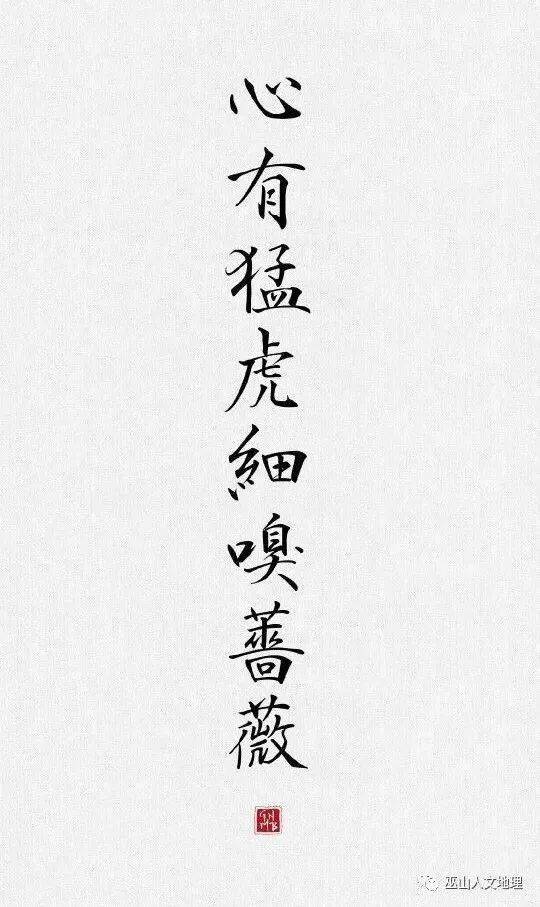 心有猛虎細嗅薔薇
巫山人文地理